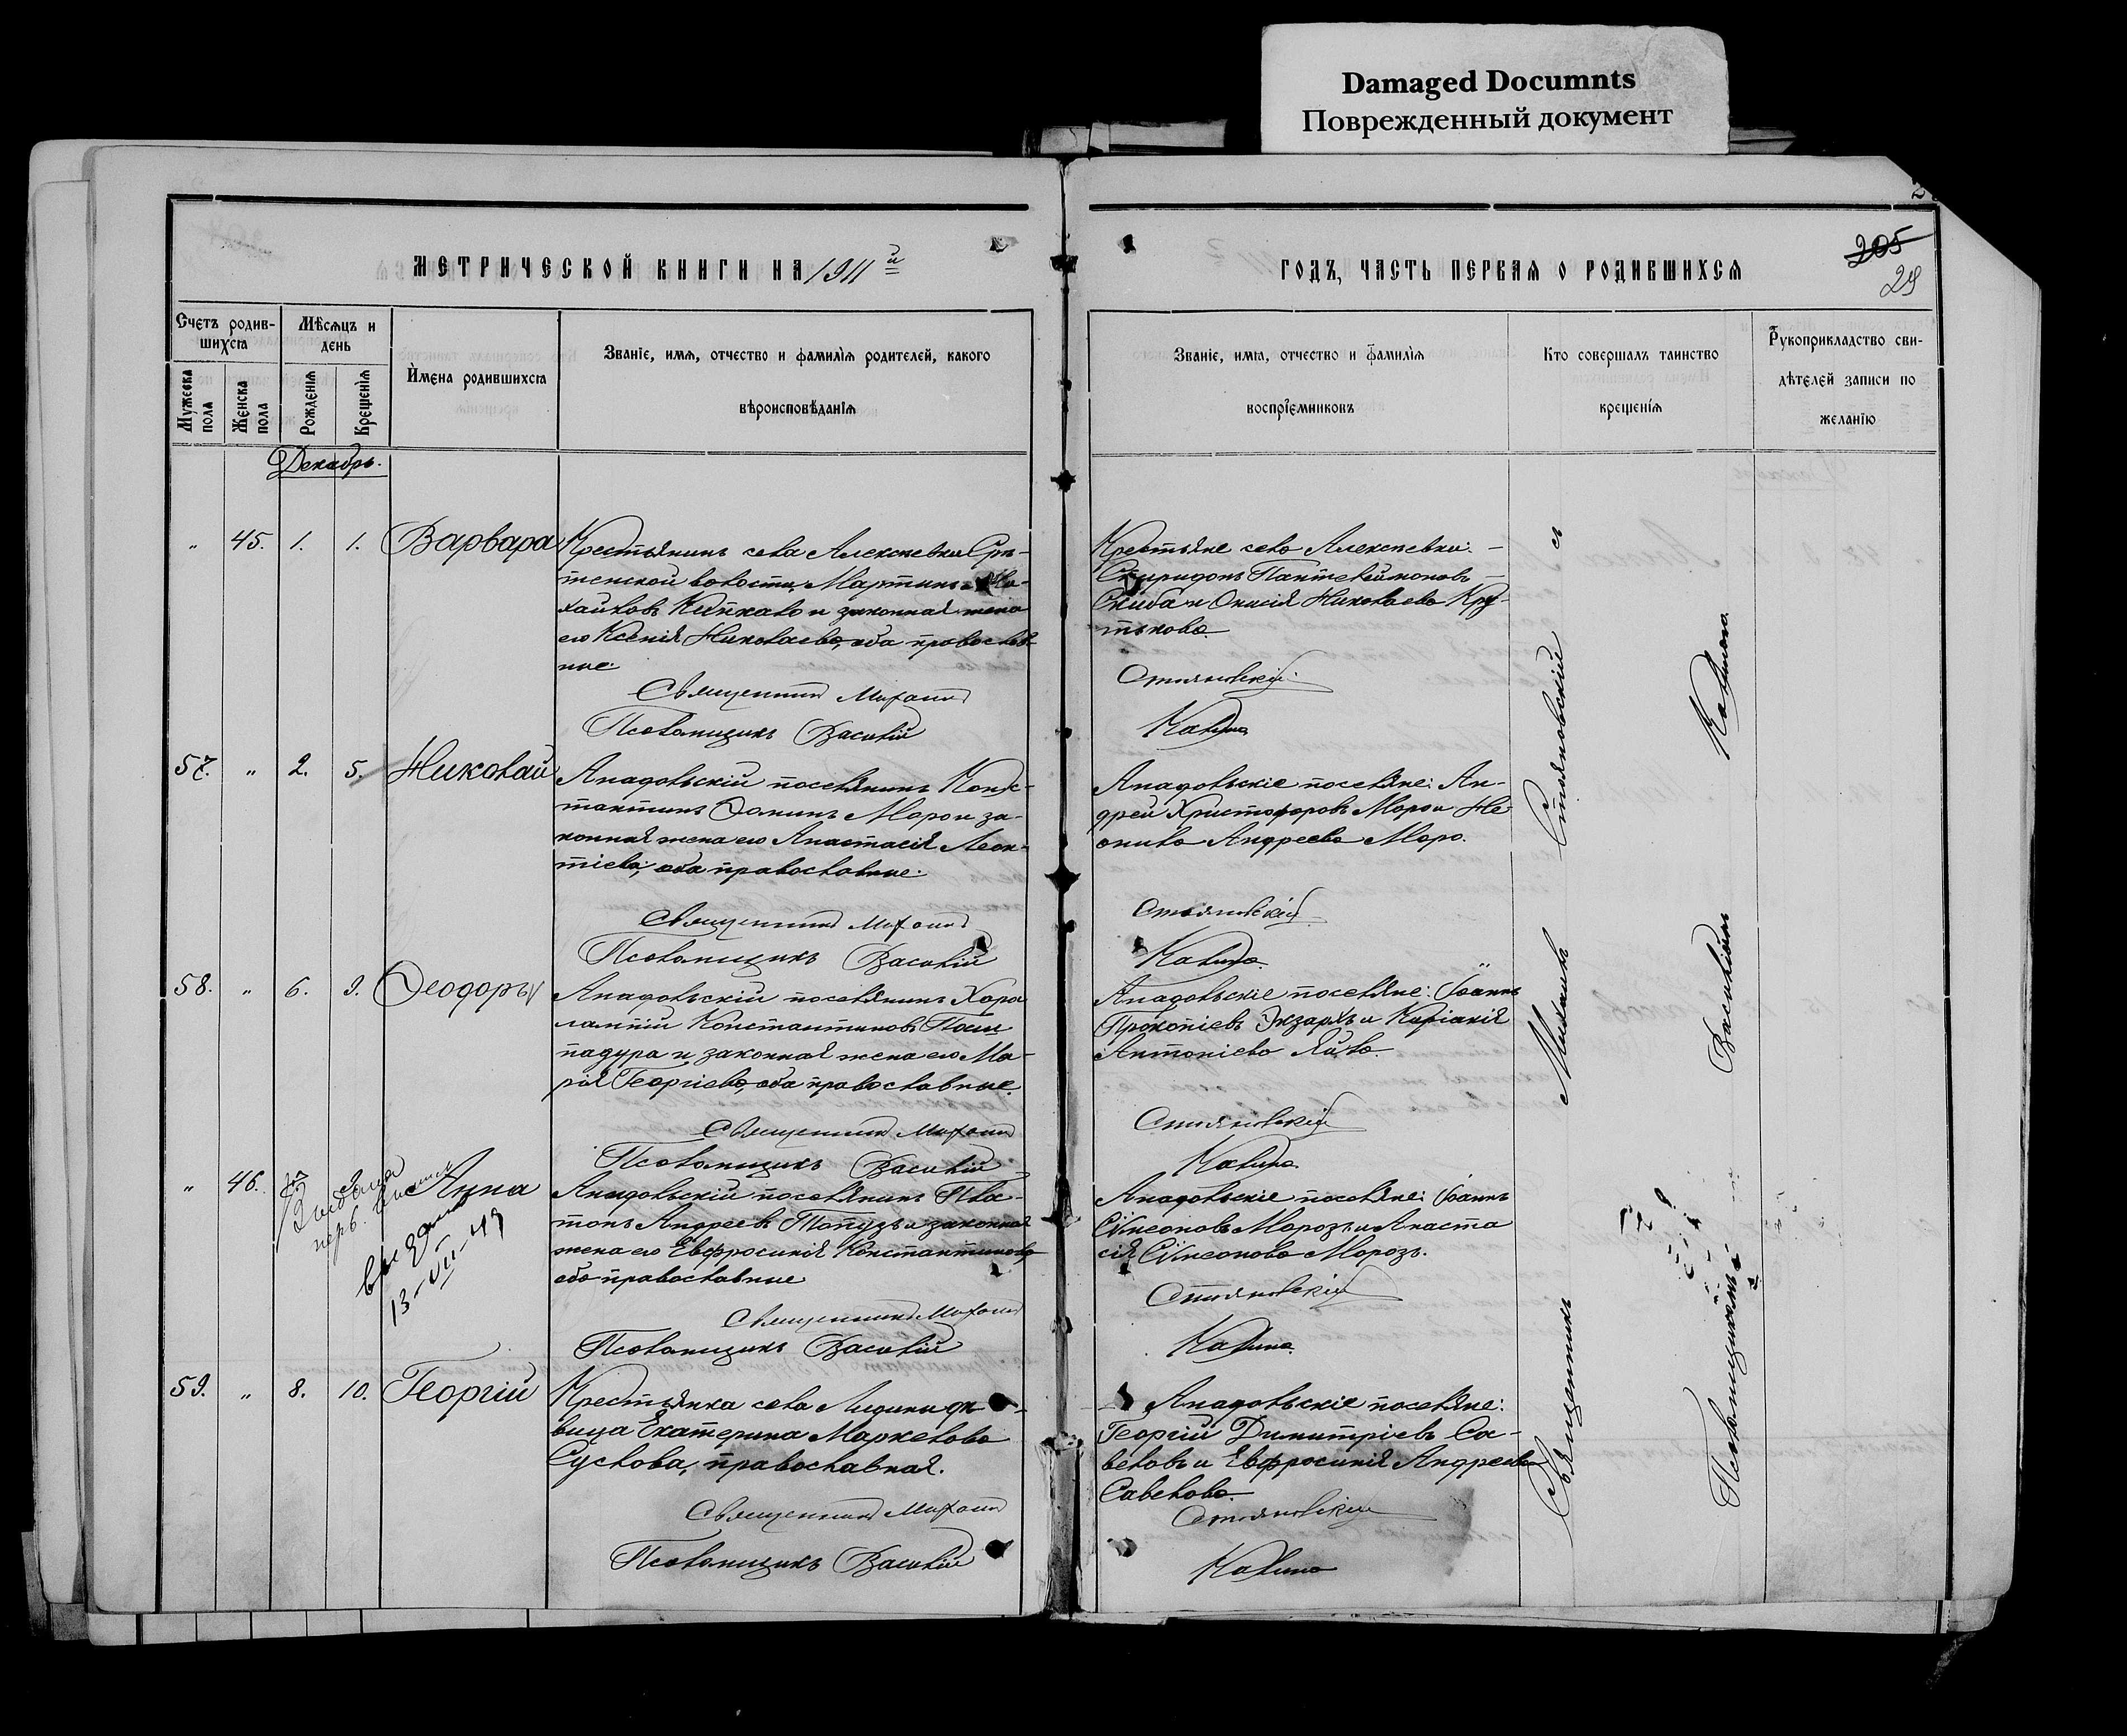 Damaged Documnts
Поврежденный документ
МЕТРИЧЕСКОЙ КНИГИ НА 1911й
ГОДЪ, ЧАСТЬ ПЕРВАЯ О РОДИВШИХСЯ
205
29
Счетъ родив-
шихся
Мужеска
пола
Женска
пола
Мѣсяцъ и
день
Рожденія
Крещенія
Имена родившихся
Званіе, имя, отчество и фамилія родителей, какого
вѣроисповѣданія
Званіе, имя, отчество и фамилія
воспріемниковъ
Кто совершалъ таинство
крещенія
Рукоприкладство сви-
дѣтелей записи по
желанію
Декабрь.
" 45. 1. 1. Варвара
Крестьянинъ села Алексѣевки Срѣ-
тенской волости, Мартинъ Ми-
хаиловъ и законная жена
его Ксенія Николаева, оба православ-
ные.
Священникъ Михаилъ
Псаломщикъ Василій
Крестьяне села Алексѣевки:
Спиридонъ Пантелеймоновъ
Скиба и Онисія Николаева Кру-
тькова.
Стояновскій
Калина
57. " 2. 5. Николай
Анадольскій поселянинъ Конс-
тантинъ Ѳоминъ Моро и за-
конная жена его Анастасія Леон-
тіева, оба православные.
Священникъ Михаилъ
Псаломщикъ Василій
Анадольскіе поселяне: Ан-
дрей Христофоровъ Моро и Не-
онила Андреева Моро.
Стояновскій
Калина.
58. " 6. 9. Ѳеодоръ
Анадольскій поселянинъ Хара
лампій Константиновъ Паш
падура и законная жена его Ма-
рія Георгіева, оба православные.
Священникъ Михаилъ
Псаломщикъ Василій
Анадольскіе поселяне: Іоаннъ
Прокопіевъ Экзархъ и Киріакія
Антоніева Яйло.
Стояновскій
Калина.
" 46. 9. Анна
выдано
13-VII-49
Анадольскій поселянинъ Пла-
тонъ Андреевъ Топузъ и законная
жена его Евфросинія Константинова
оба православные
Священникъ Михаилъ
Псаломщикъ Василій
Анадольскіе поселяне: Іоаннъ
Сѵмеоновъ Морозъ и Анаста
сія Сѵмеонова Морозъ.
Стояновскій
Калина.
59. " 8. 10. Георгій
Крестьянка села дѣ-
вица Екатерина Маркелова
Суслова, православная.
Священникъ Михаилъ
Псаломщикъ Василій
Анадольскіе поселяне:
Георгій Димитріевъ Са-
веловъ и Евфросинія Андреева
Савелова.
Стояновскій
Калина
Священникъ Михаилъ Стояновскій съ
Псаломщикомъ Василіемъ Калиною